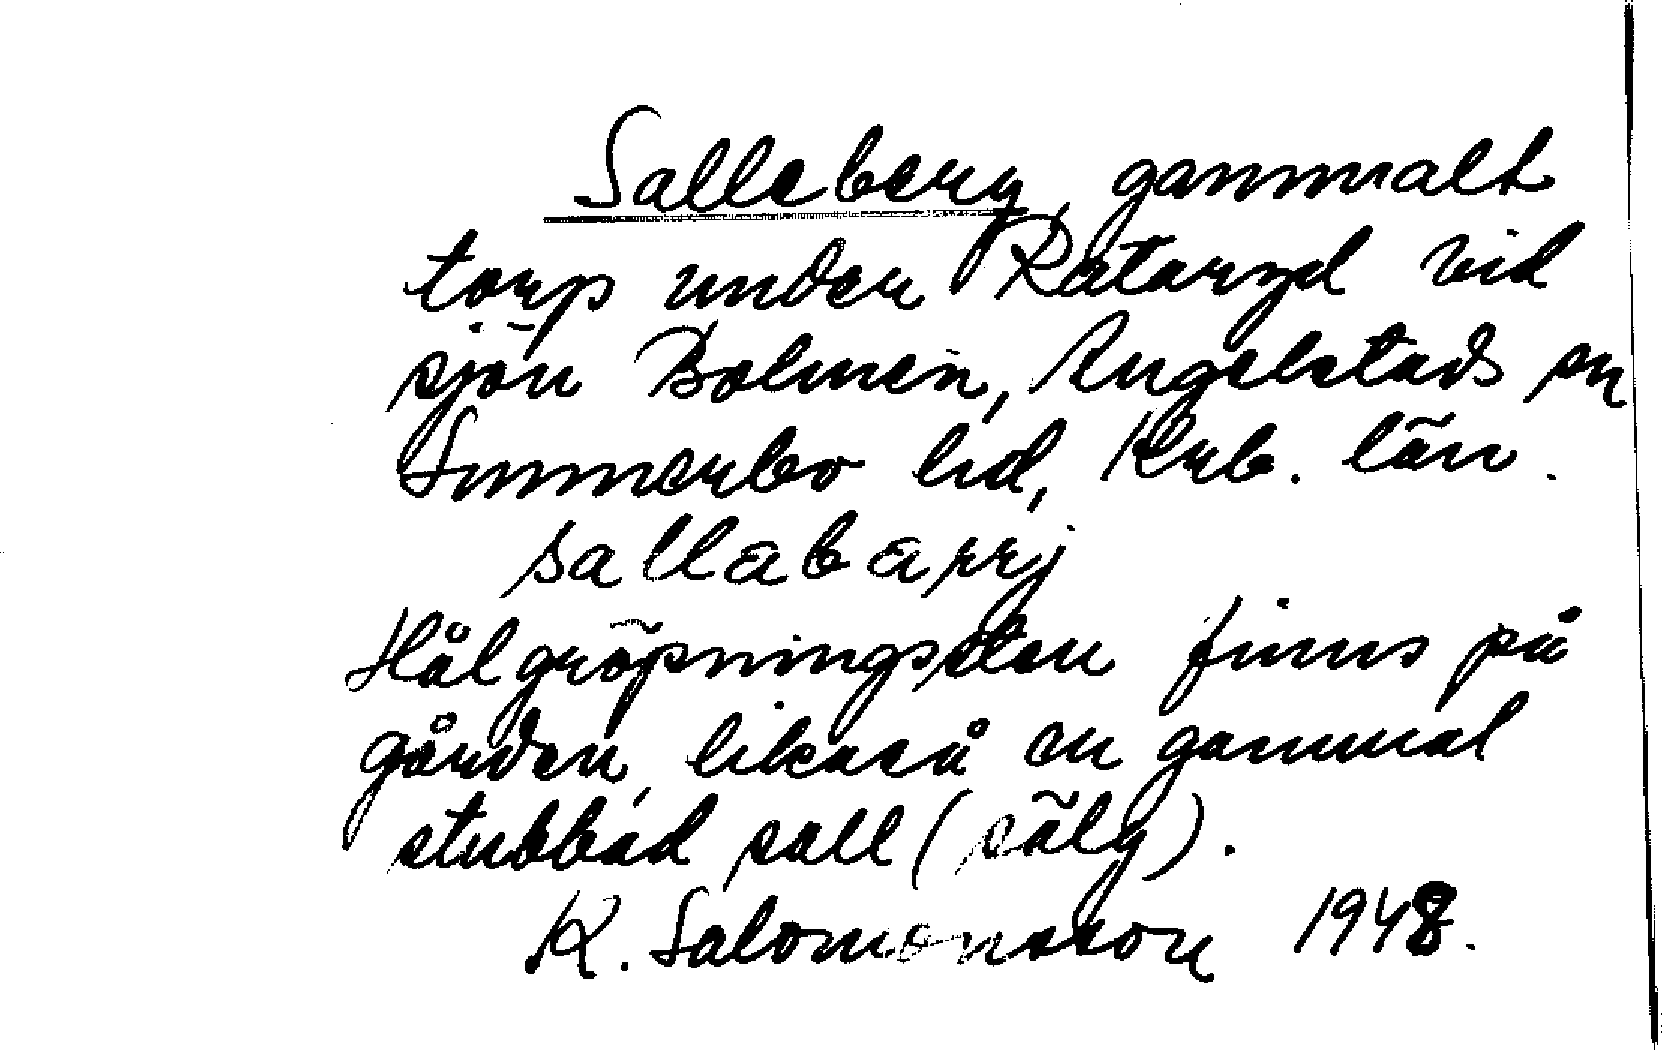 Salleberg, gammalt
torp under Rataryd vid
sjön Bolmen, Angelstads sn
Sunnerbo hd, Krb. län.
sallabarrj
Hålgröpningsten finns på
gården, likaså en gammal
stubbad sall (sälg).
K. Salomonsson 1948.